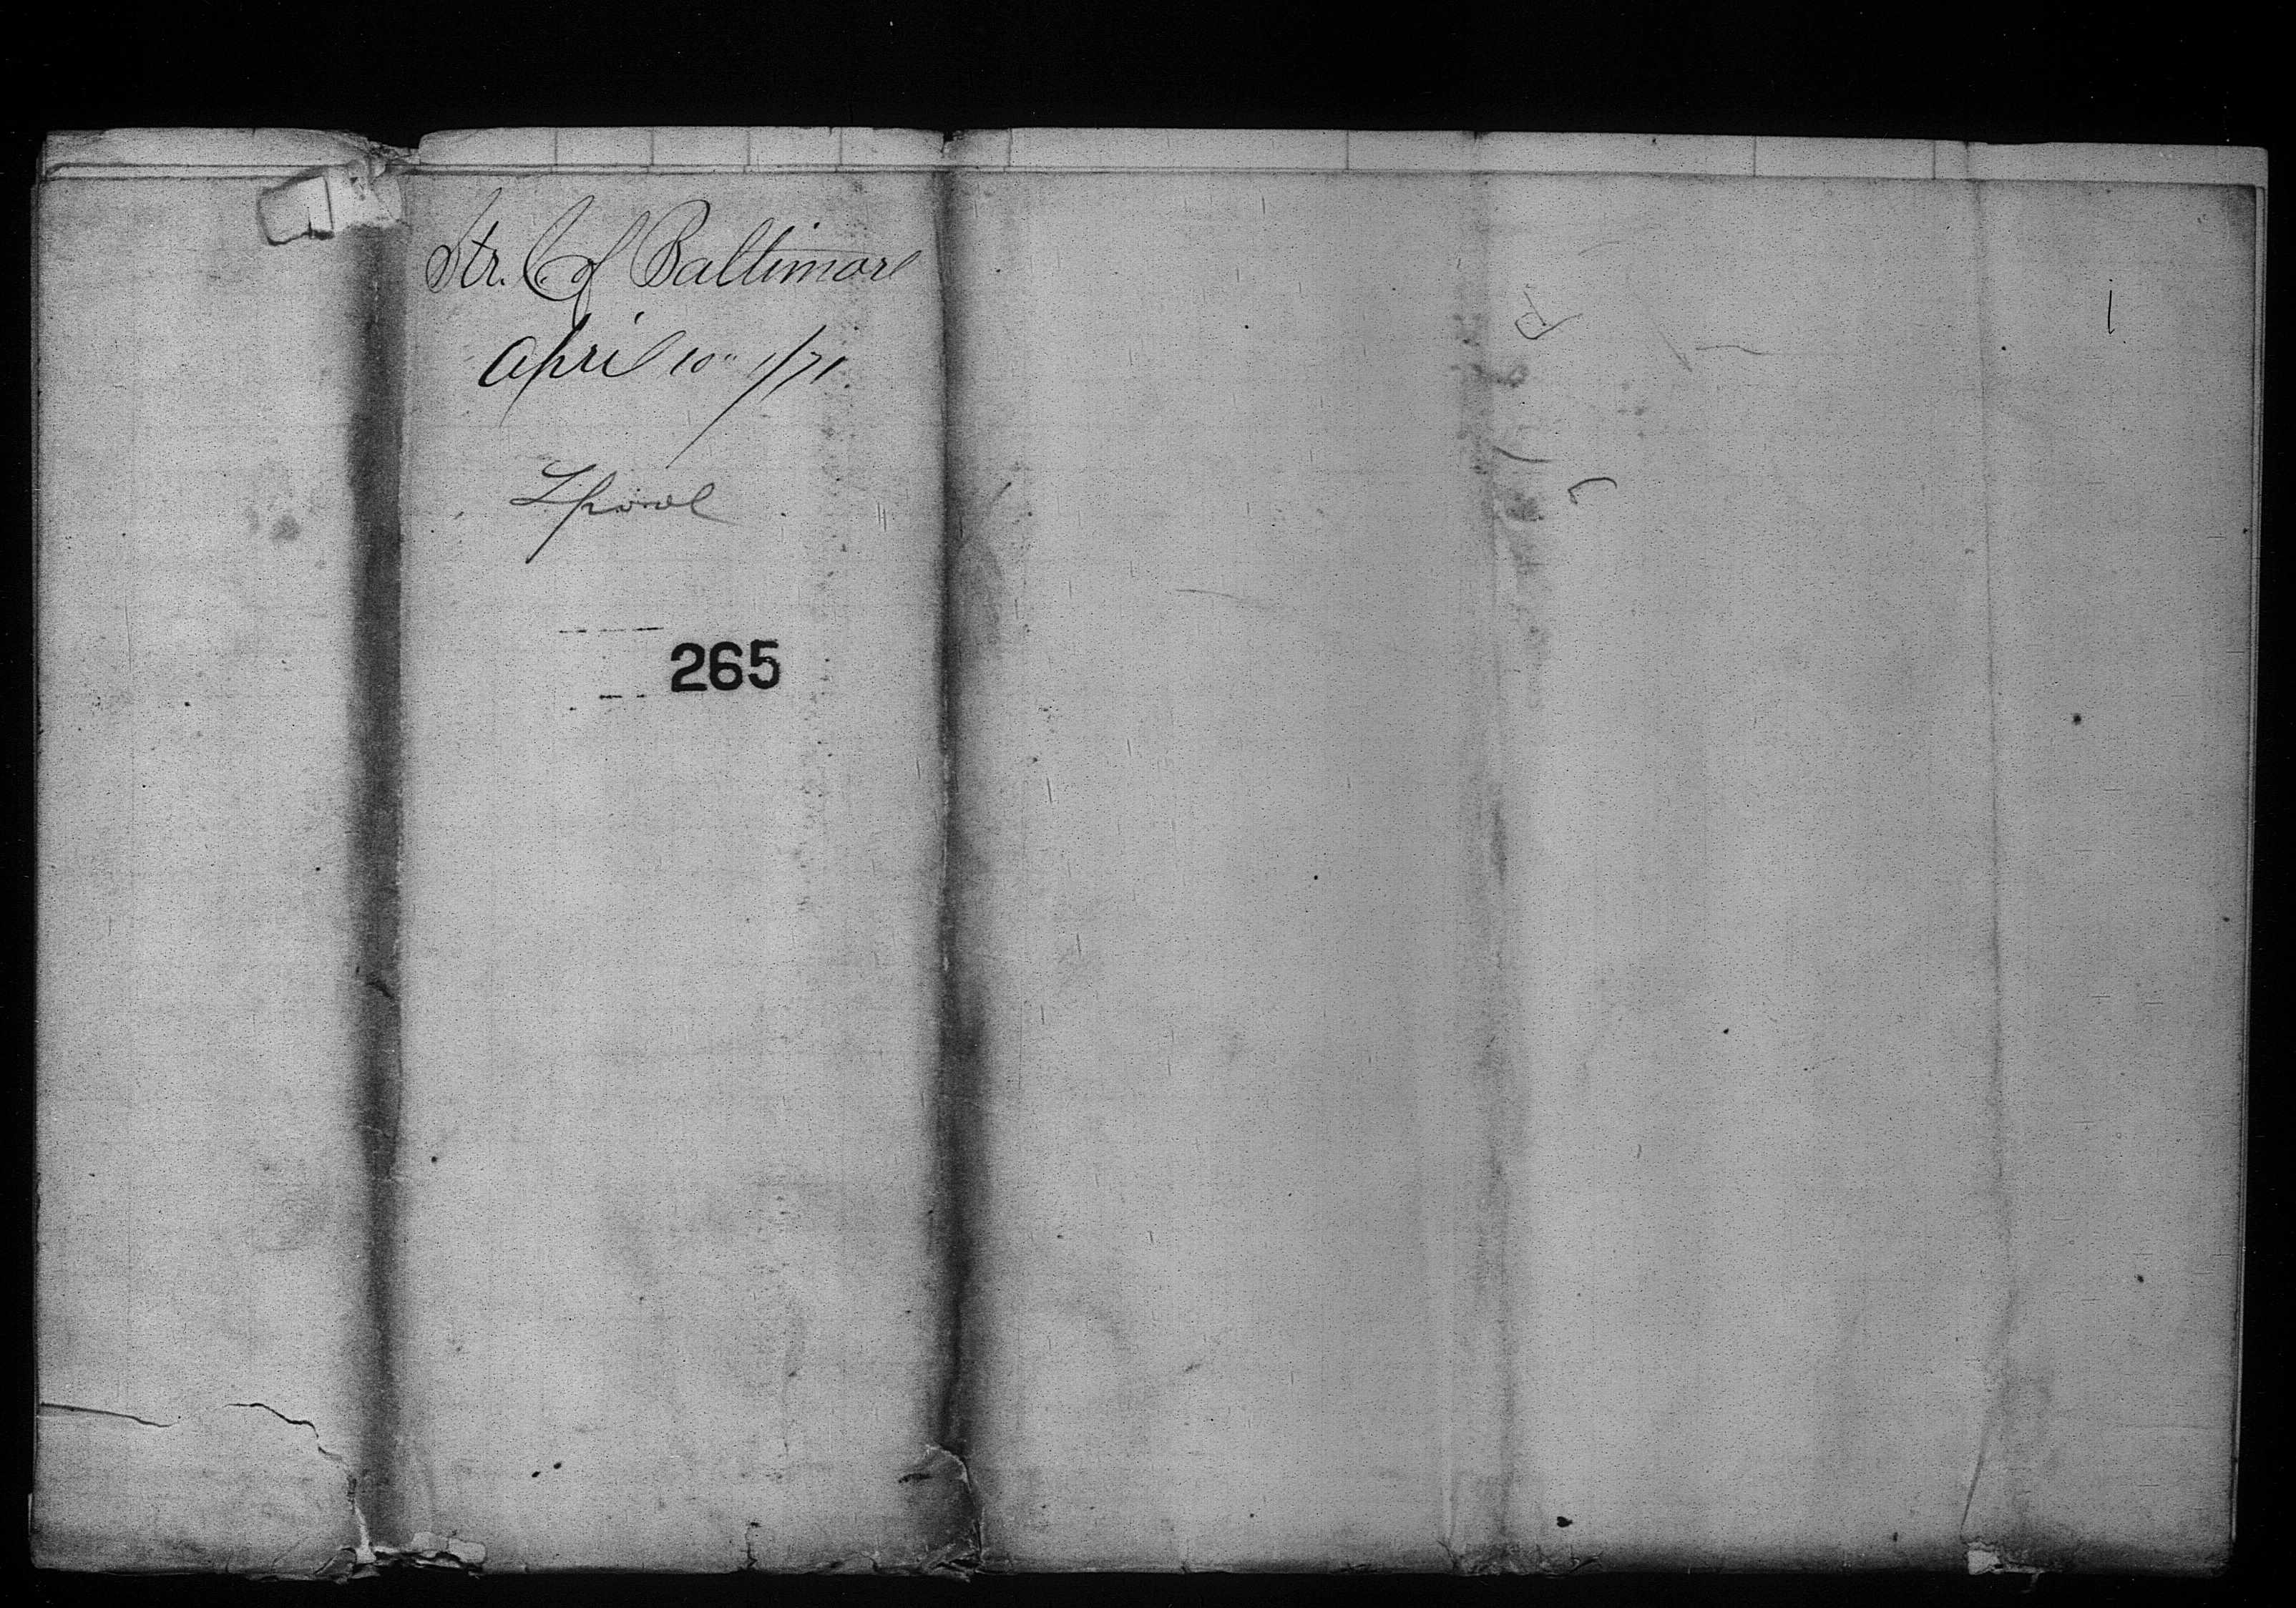 Str. C of Baltimore
April 10" 1/71.
L'pool
265